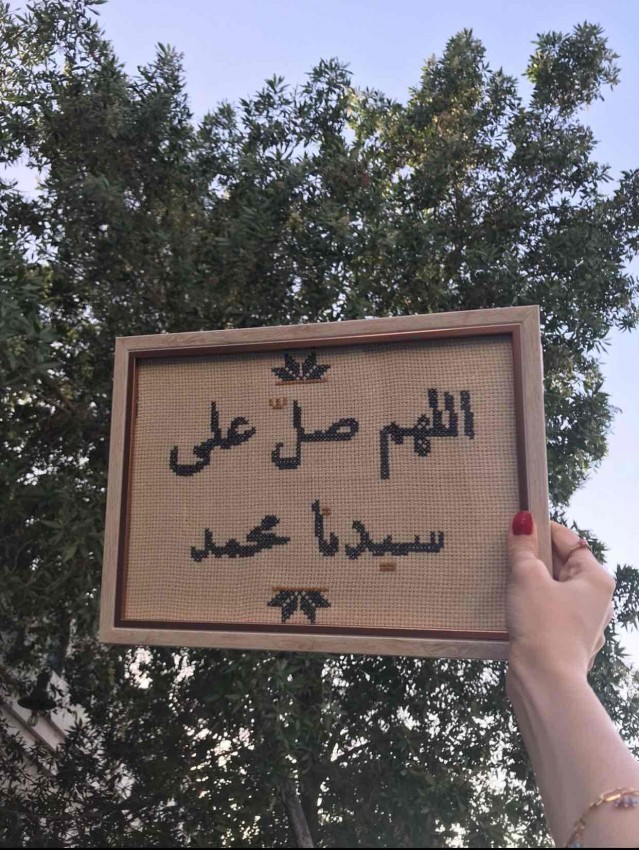 اللهم صلّ على
سيدنا محمد